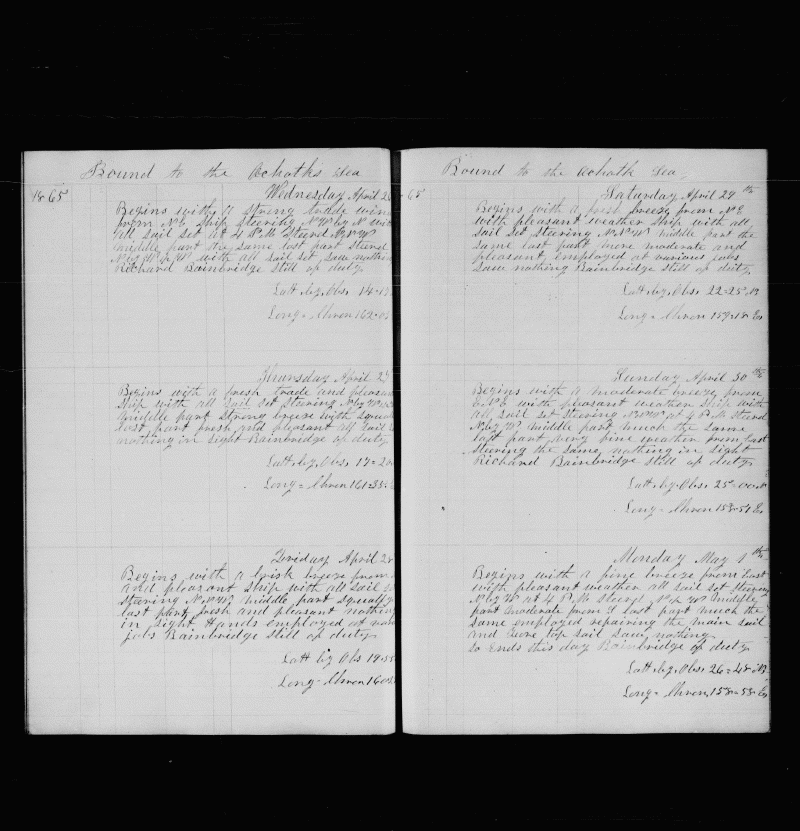 Bound to the Ochotks Sea
Wednesday April 26
1865
Begins with a strong trade wind
from N.E. Ship stearing N.W by N with
all sail set at 4 P.M. Steard N.N.W
middle part the same last part steard
with all sail set saw nothing
Richard Bainbridge still of duty
Latt. by. Obs. 14=1
Long = Chron 162=0
Thursday April 27
Begins with a fresh trade and pleasant
Ship with all sail set stearing N by W
middle part strong breeze with squalls
last part fresh and pleasant all sail
nothing in sight Bainbridge of duty
Latt. by. Obs. 17=20
Long = Chron 161=35
Friday April 28
Begins with a brisk breeze from
and pleasant Ship with all sail
Stearing N.N.W. middle part squally
last part fresh and pleasant nothing
in sight Hands employed at
jobs Bainbridge still of duty
Latt by Obs 19=55
Long = Chron 160=
Bound to the Ochotk Sea,
65
Saturday April 29th
Begins with a fresh breeze from N.E
with pleasant weather Ship with all
sail set Stearing N.N.W. middle part the
same last part more moderate and
pleasant employed at various jobs
Saw nothing Bainbridge still of duty
Latt by. Obs. 22=25=N
Long = Chron 159=18=Es
Sunday April 30th
Begins with a moderate breeze from
with pleasant weather Ship with
all sail set stearing N.N.W at 4 P.M steard
N by W. middle part much the same
last part very fine weather from East
stearing the same, nothing in sight
Richard Bainbridge still of duty
Latt. by. Obs. 25=00=N
Long = Chron 158=51 Es
Monday May 1th
Begins with a fine breeze from East
with pleasant weather all sail set stearing
N by W at 4 P.M. steard middle
part moderate from last part much the
same employed repairing the main sail
and fore top sail Saw nothing
So Ends this day Bainbridge of duty
Latt. by. Obs. 26=48=N.
Long = Chron, 158=58=Es